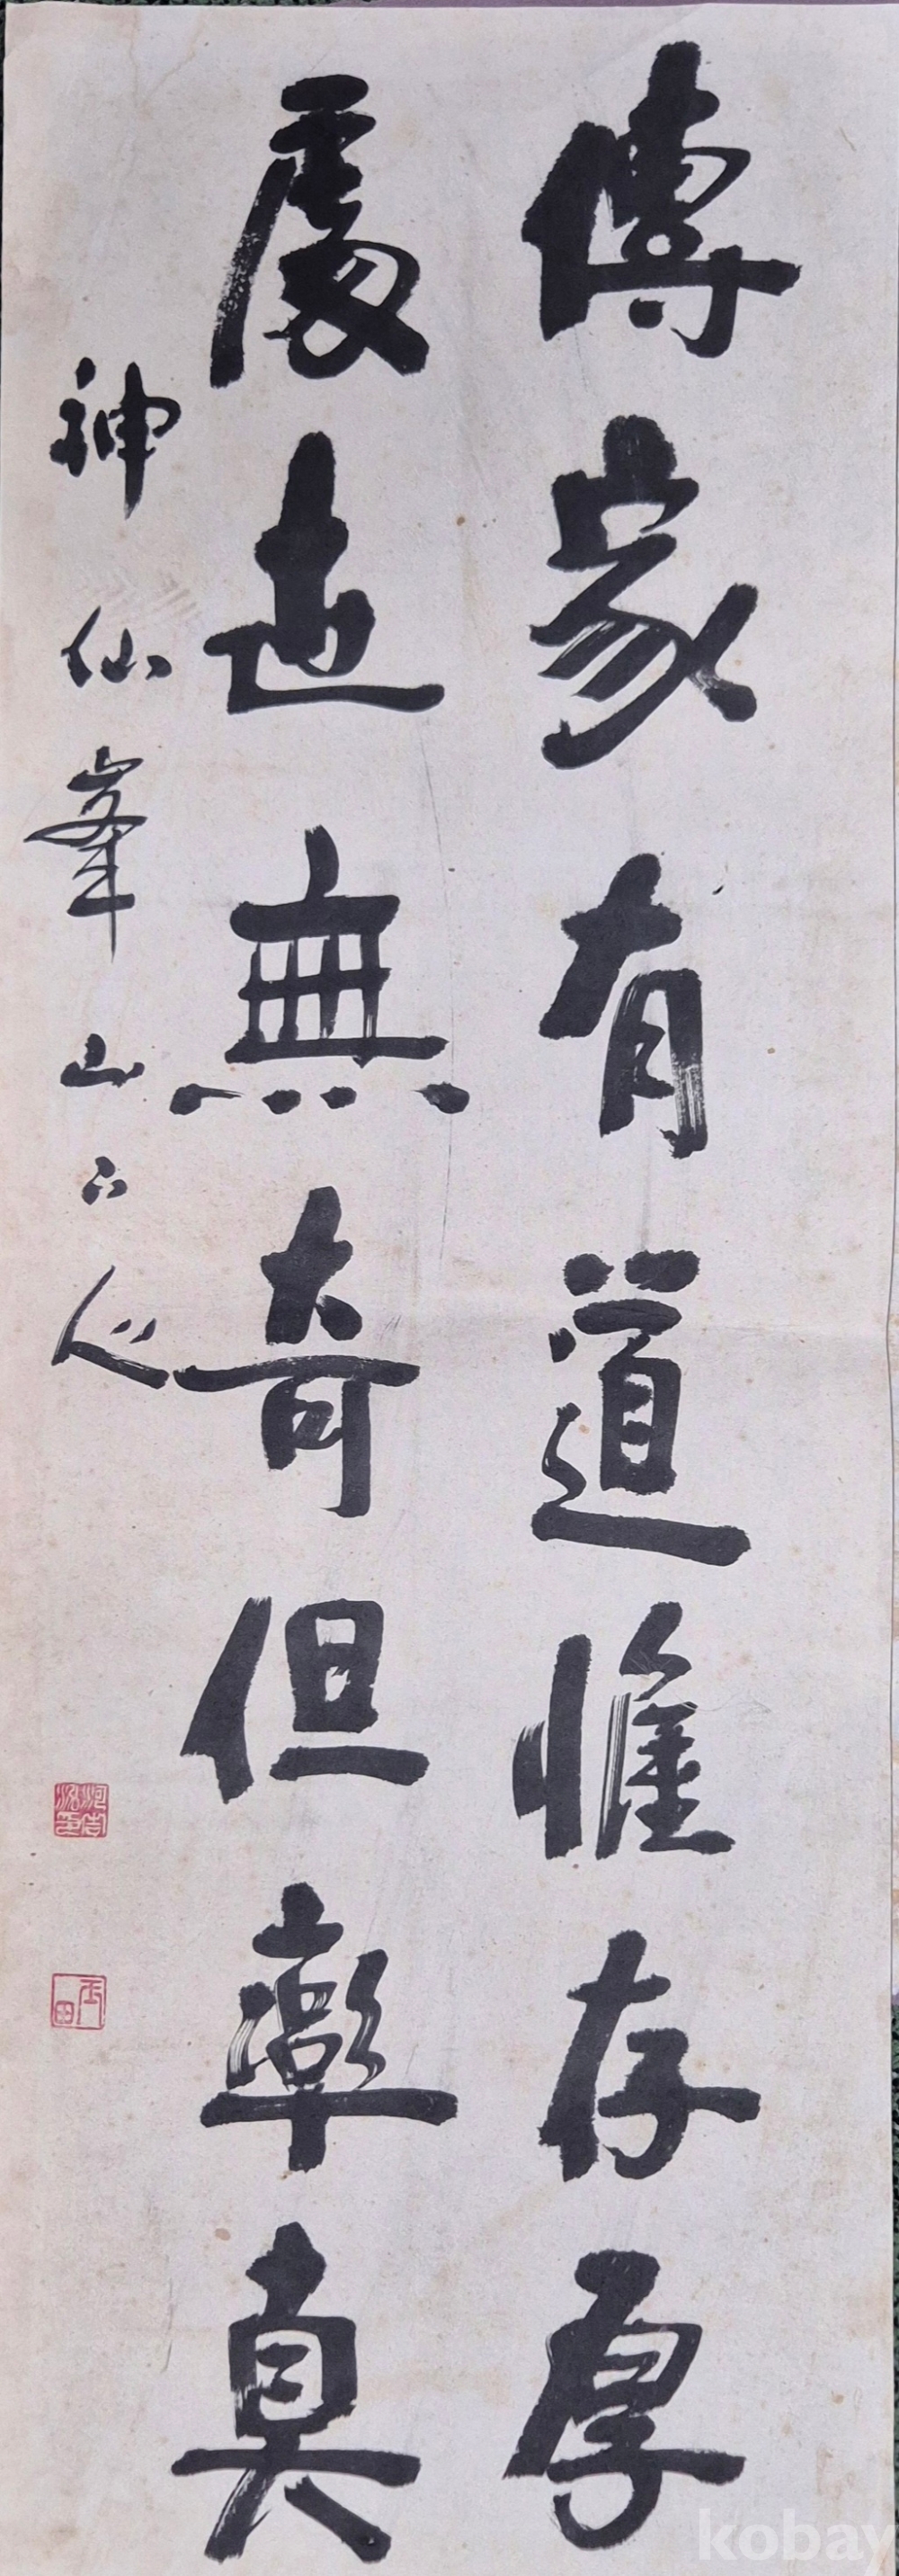 傳家有道惟存厚
處世無奇但率真
神仙峯山下人
kobay